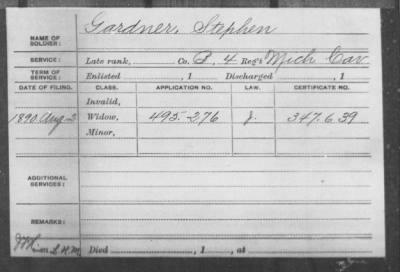 NAME OF SOLDIER: Gardner, Stephen
SERVICE: Late rank, Co. B, 4 Reg't Mich Cav
TERM OF SERVICE: Enlisted , 1 Discharged , 1
DATE OF FILING. CLASS. APPLICATION NO. LAW. CERTIFICATE NO.
Invalid,
1890 Aug 2 Widow, 495.276 347.639
Minor,
ADDITIONAL SERVICES:
REMARKS:
Died , 1 , at